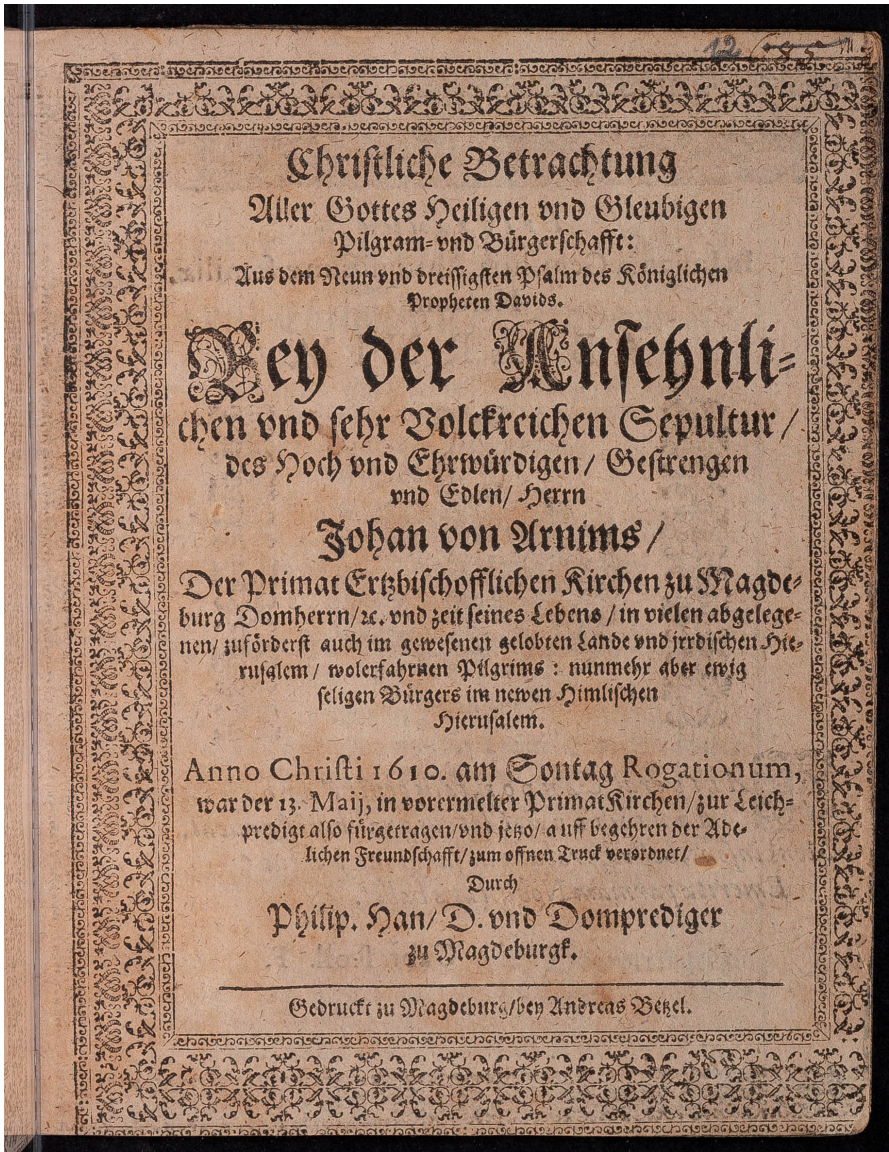 12 685
Christliche Betrachtung
Aller Gottes Heiligen vnd Gleubigen
Pilgram- vnd Bürgerschafft:
Aus dem Neun vnd dreissigsten Psalm des Königlichen
Propheten Davids.
Bey der Ansehnli-
chen vnd sehr Volckreichen Sepultur /
des Hoch vnd Ehrwürdigen / Gestrengen
vnd Edlen / Herrn
Johan von Arnims /
Der Primat Ertzbischofflichen Kirchen zu Magde-
burg Domherrn / ꝛc. vnd zeit seines Lebens / in vielen abgelege-
nen / zuförderst auch im gewesenen gelobten Lande vnd jrrdischen Hie-
rusalem / wolerfahrnen Pilgrims : nunmehr aber ewig
seligen Bürgers im newen Himlischen
Hierusalem.
Anno Christi 1610. am Sontag Rogationum,
war der 13. Maij, in vorermelter Primat Kirchen / zur Leich-
predigt also fürgetragen / vnd jetzo / auff begehren der Ade-
lichen Freundschafft / zum offnen Truck verordnet /
Durch
Philip. Han / D. vnd Domprediger
zu Magdeburgk.
Gedruckt zu Magdeburg / bey Andreas Betzel.